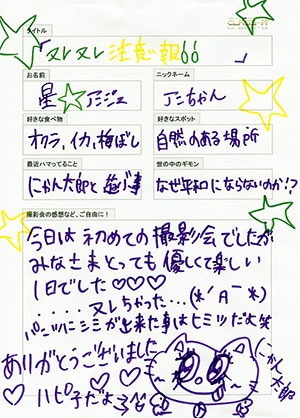 タイトル
「ヌレヌレ注意報!!」
お名前
星☆アンジェ
ニックネーム
アンちゃん
好きな食べ物
オクラ、イカ、梅ぼし
好きなスポット
自然のある場所
最近ハマってること
にゃん太郎と遊ぶ事
世の中のギモン
なぜ平和にならないのか!?
撮影会の感想など、ご自由に!
今日は初めての撮影会でしたが
みなさまとっても優しくて楽しい
1日でした♡♡♡
....ヌレちゃった…(*´Д`*)
パンツにシミが出来た事はヒミツだよ笑
ありがとうございました
ハピ子だよ
にゃん太郎